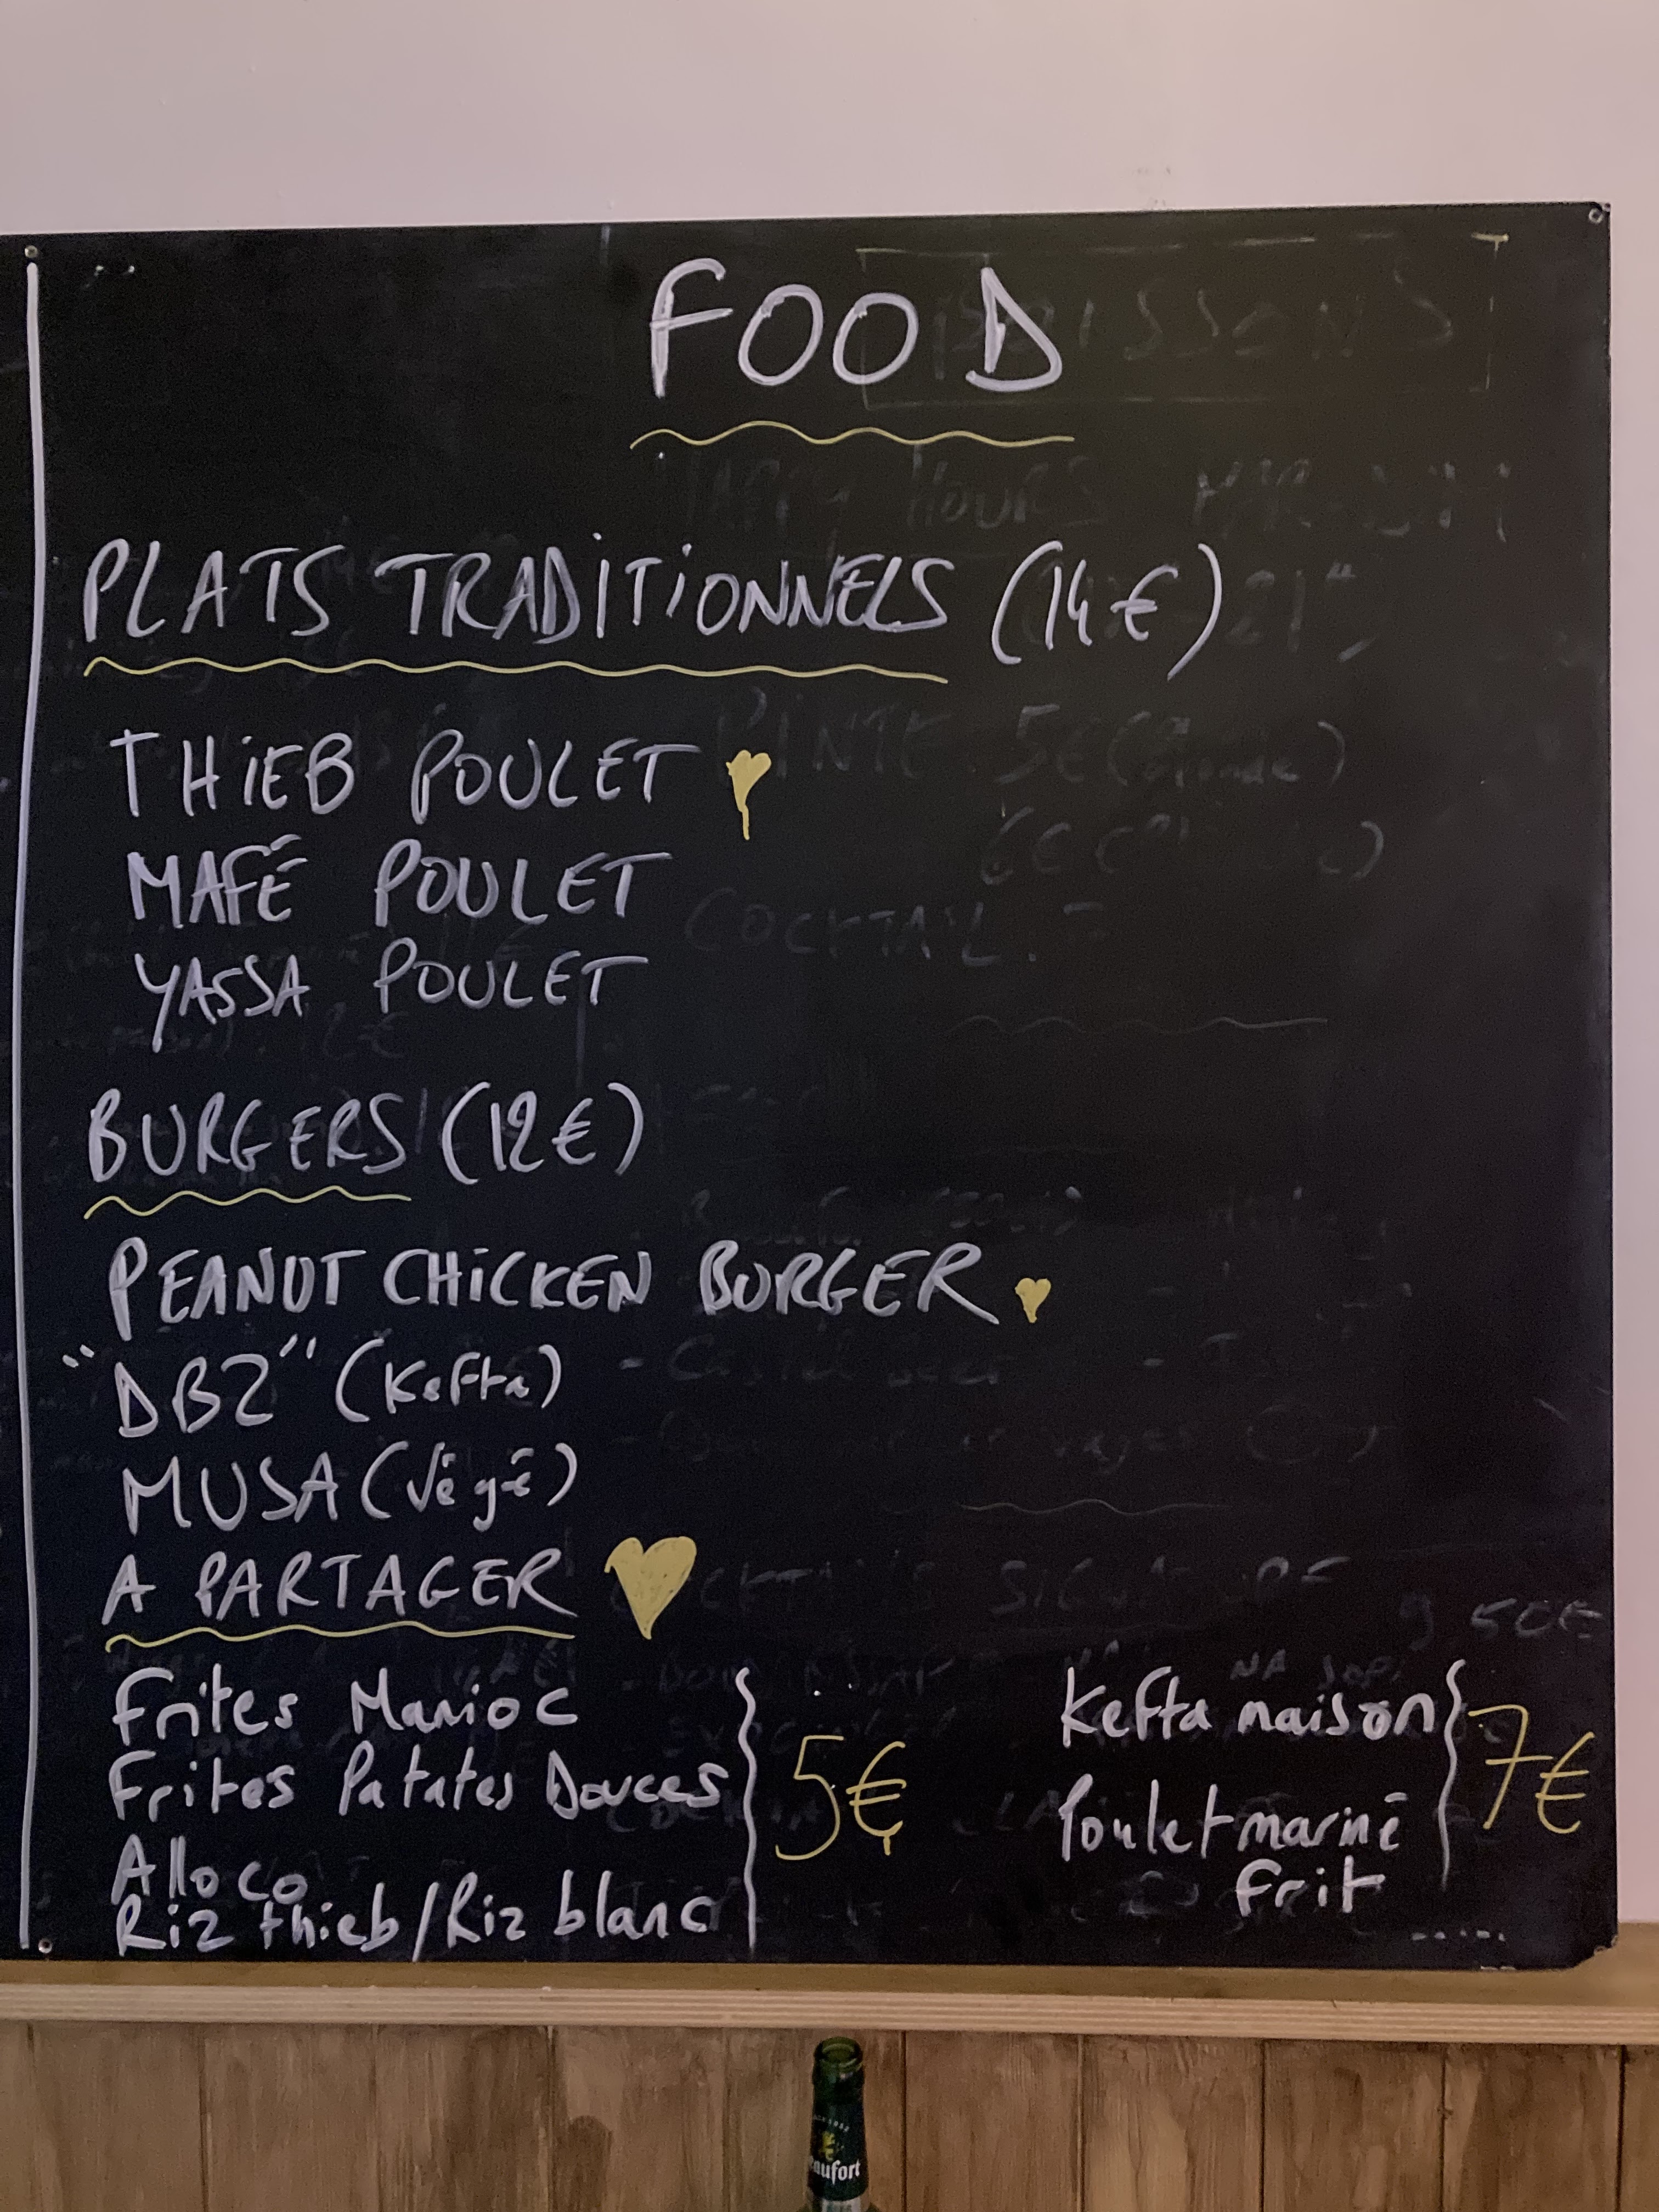 FOOD
PLATS TRADITIONNELS (14€)
THIEB POULET
MAFÉ POULET
YASSA POULET
BURGERS (12€)
PEANUT CHICKEN BURGER
"DBZ" (Kefta)
MUSA (végé)
A PARTAGER
Frites Manioc
Frites Patates Douces
Alloco
Riz thieb/Riz blanc
5€
Kefta maison
Poulet mariné
frit
7€
BOISSONS
HAPPY HOURS
PINTE 5€ (Blonde)
COCKTAIL :
aufort